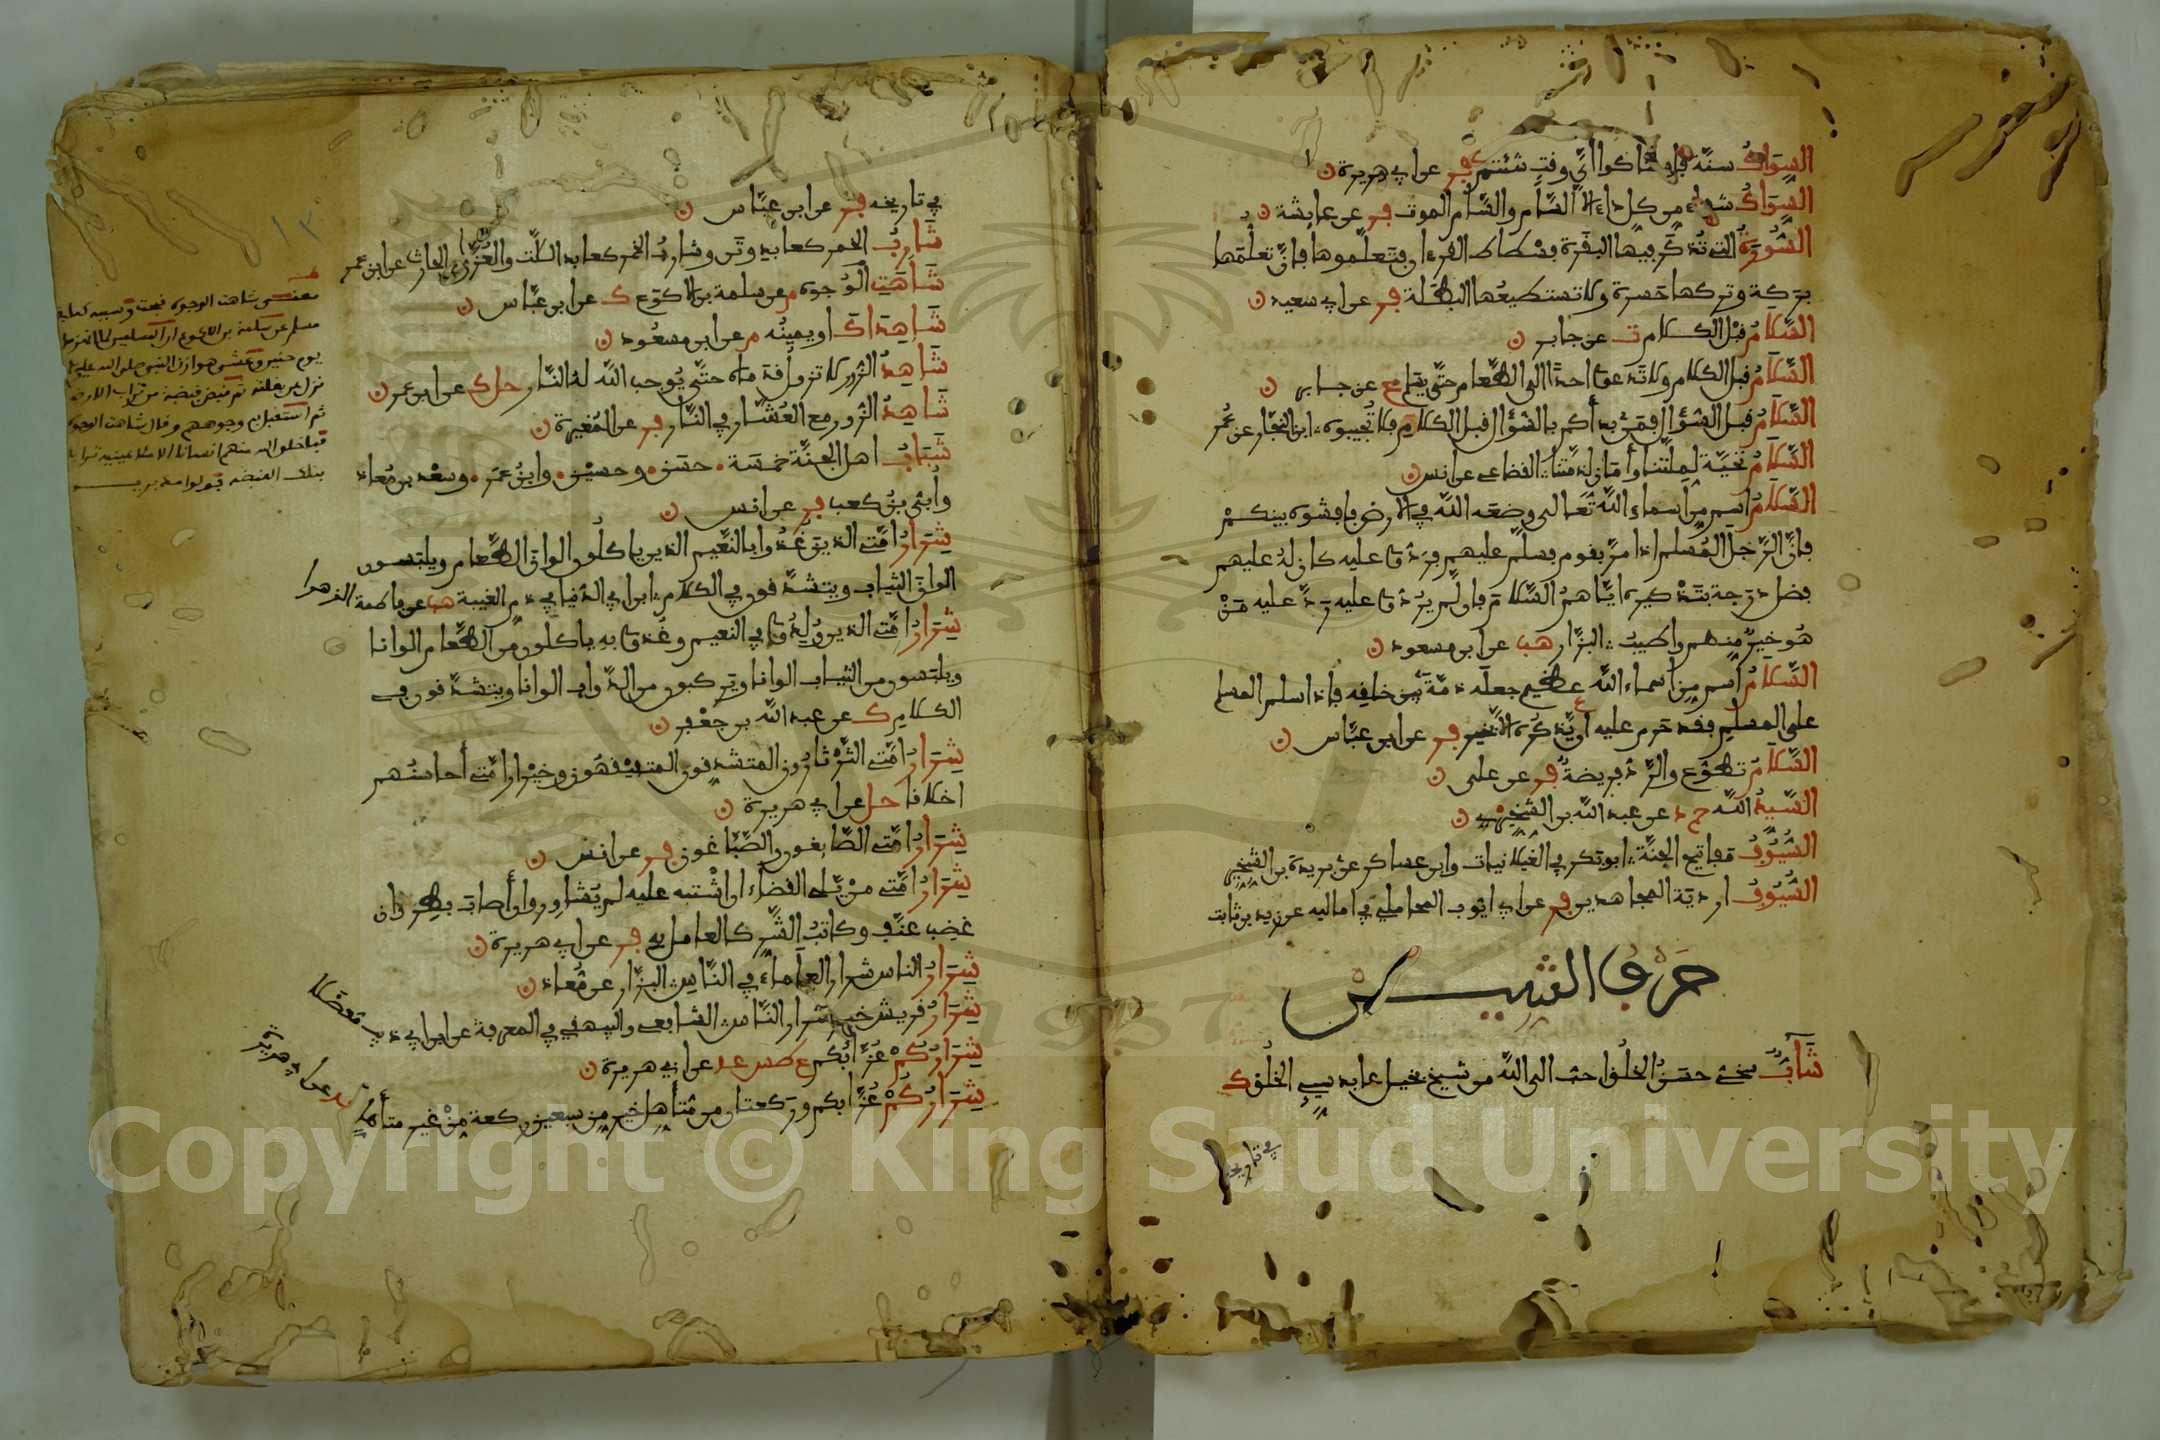 السِّوَاكُ سنّة فاستاكوا أيّ وقت شئتم فر عن أبي هريرة
السِّوَاكُ شفاء من كل داء إلا السّام والسّام الموت فر عن عايشة
السُّورَةُ التي تُذكَر فيها البقرة فسْطاط القرءان فتعلّموها فإنّ تعلّمها
بركة وتركها حَسرة ولا تستطيعُها البطَلة فر عن أبي سعيد
السَّلَامُ قبْل الكلام ت عن جابر
السَّلَامُ قبل الكلام ولا تَدعوا أحدًا إلى الطّعام حتّى يسلم ع عن جابر
السَّلَامُ قبل السُّؤال فمن بدأكم بالسُّؤال قبل الكلام فلا تُجيبوه ابن النجّار عن عُمر
السَّلَامُ تَحيّة لمِلّتنا وأمَان لذمّتنا القضاعى عن أنس
السَّلَامُ اسم من أسماء اللّه تعالى وضعه اللّه في الأرض فافشوه بينكمْ
فإنّ الرّجل المُسلم إذا مرّ بقوم فسلّم عليهم فرَدّوا عليه كان لهُ عليهم
فضل درجة بتَذْكيره إيّاهمُ السَّلامَ فإن لم يرُدّوا عليه رَدّ عليه مَنْ
هُو خيرٌ منهم وأطيبُ البزّار هب عن ابن مسعود
السَّلَامُ اسم مِن أسماء اللّه عظيم جعله ذمّةً بين خلقِه فإذا سلم المسلم
على المسلم فقد حَرم عليه أن يَذكُره إلا بخير فر عن ابن عبّاس
السَّلَامُ تطوّع والرّدّ فريضةٌ فر عن على
السَّيِّدُ اللّه حم د عن عبد اللّه بن الشّخِّير
السُّيُوفُ مَفاتيح الجنّة أبو بَكر في الغيلانيات وابن عساكر عن يزيدة بن الشِّخِّير
السُّيُوفُ أرديَة المجاهدين فر عن أبي أيوب المحاملي في أماليه عن زيد بن ثابت
حَرْفُ الشِّيــــن
شَابٌّ سَخىّ حسَنُ الخلُق أحبّ إلى اللّه من شيخ بخيل عابد سَيّئ الخلُق ك
في تاريخه
في تاريخه فر عن ابن عبّاس
شَارِبُ الخمر كعابد وَثَن وشاربُ الخمر كعابد اللّات والعُزّى الحارث عن ابن عمر
شَاهَتِ الوُجوه م عن سلمة بن الاكوَع ك عن ابن عبّاس
شَاهِدَاكَ أو يمينُه م عن ابن مسعُود
شَاهِدُ الزّور لا تزولُ قدماه حتّى يُوجب اللّه لهُ النّار حل ك عن ابن عمر
شَاهِدُ الزّور مع العُشّار في النّار فر عن المُغيرة
شَبَابُ أهل الجنّة خمسَة حسَن وحسيْن وابنُ عمَر وسعْد بن مُعاذ
وأُبَيُّ بنُ كعب فر عن أنس
شِرَارُ أمّتي الذين غُذُوا بالنّعِيم الذين ياكلُون ألوان الطّعام ويلبَسون
ألوان الثّياب ويتشدّقون في الكلام ابن أبي الدُّنيا في ذم الغيبة هب عن فاطمة الزهرا
شِرَارُ أمّتي الذين وُلِدُوا في النعيم وغُذوا به ياكلون من الطّعام ألوانا
ويلبَسون من الثياب ألوانا ويَركبون من الدّواب ألوانا ويتشدّقون في
الكلام ك عن عبد اللّه بن جَعْفر
شِرَارُ أمّتي الثّرْثارُون المتشدّقون المتفَيْهقُون وخِيَار أمّتي أحاسنُهم
أخلاقا خد عن أبي هريرة
شِرَارُ أمّتي الصّايغون والصّبّاغون فر عن أنس
شِرَارُ أمّتي منْ يَلي القضاء إن اشْتَبه عليه لم يُشاور وإن أصابَ بطِر وإن
غضِب عَنّف وكاتبُ السّوء كالعامل به فر عن أبي هريرة
شِرَارُ الناس شرار العلماء في النّاس البزّار عن مُعاذ
شِرَارُ قريش خير شرار النّاس الشافعي والبيهقي في المعرفة عن ابن أبي ذيب معضلا
شِرَارُكُمْ عُزّابُكم ع طس عد عن أبي هريرة
شِرَارُكُمْ عُزّابكم وركعتان من مُتأهِّل خير من سبعين ركعة منْ غير متأهِّل
عد عن أبي هريرة
معنى شاهت الوجوه قبحت وسببه كما في
مسلم عن سلمة بن الاكوع ان المسلمين لما
يوم حنين وغشى هوازن النبي صلى الله عليه
نزل عن بغلته ثم قبض قبضة من تراب الارض
ثم استقبل به وجوههم وقال شاهت الوجوه
فما خلق الله منهم انسانا الا ملا عينيه ترابا
بتلك القبضه فولوا مدبريــن
١٢